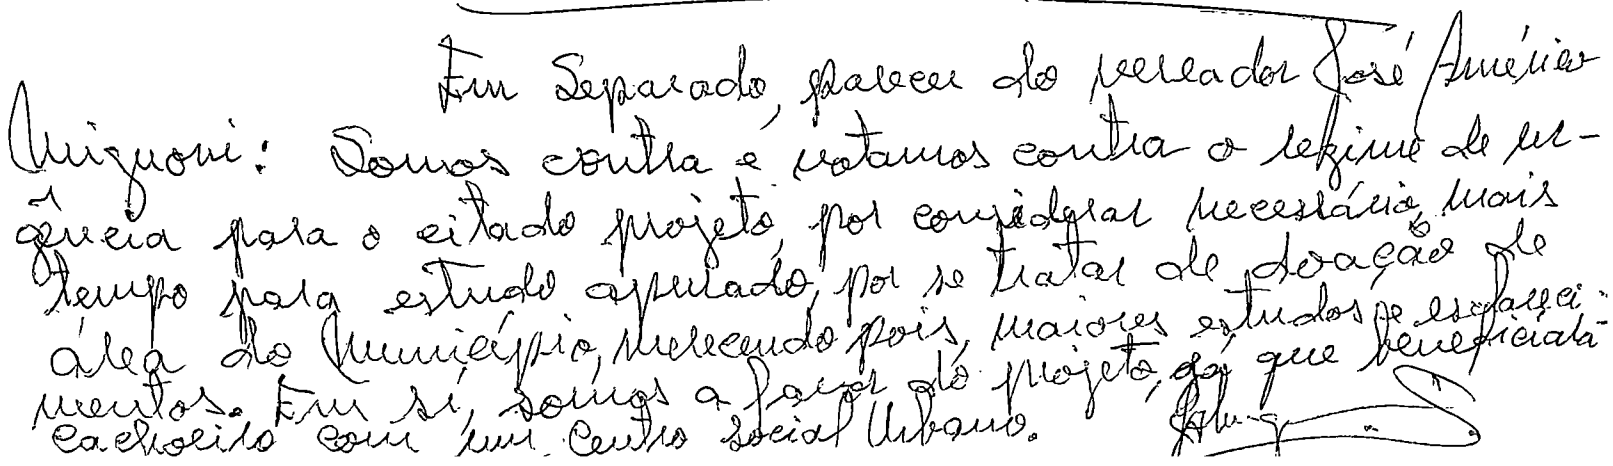 Em Separado, parecer do vereador José Américo
Mignoni: Somos contra e votamos contra o regime de ur-
gência para o citado projeto, por considerar necessário, mais
tempo para estudo apurado, por se tratar de doação de
área do Município, merecendo pois, maiores estudos e esclareci-
mentos. Em sí, somos a favor do projeto, já que beneficiará
Cachoeiro com um Centro Social Urbano.